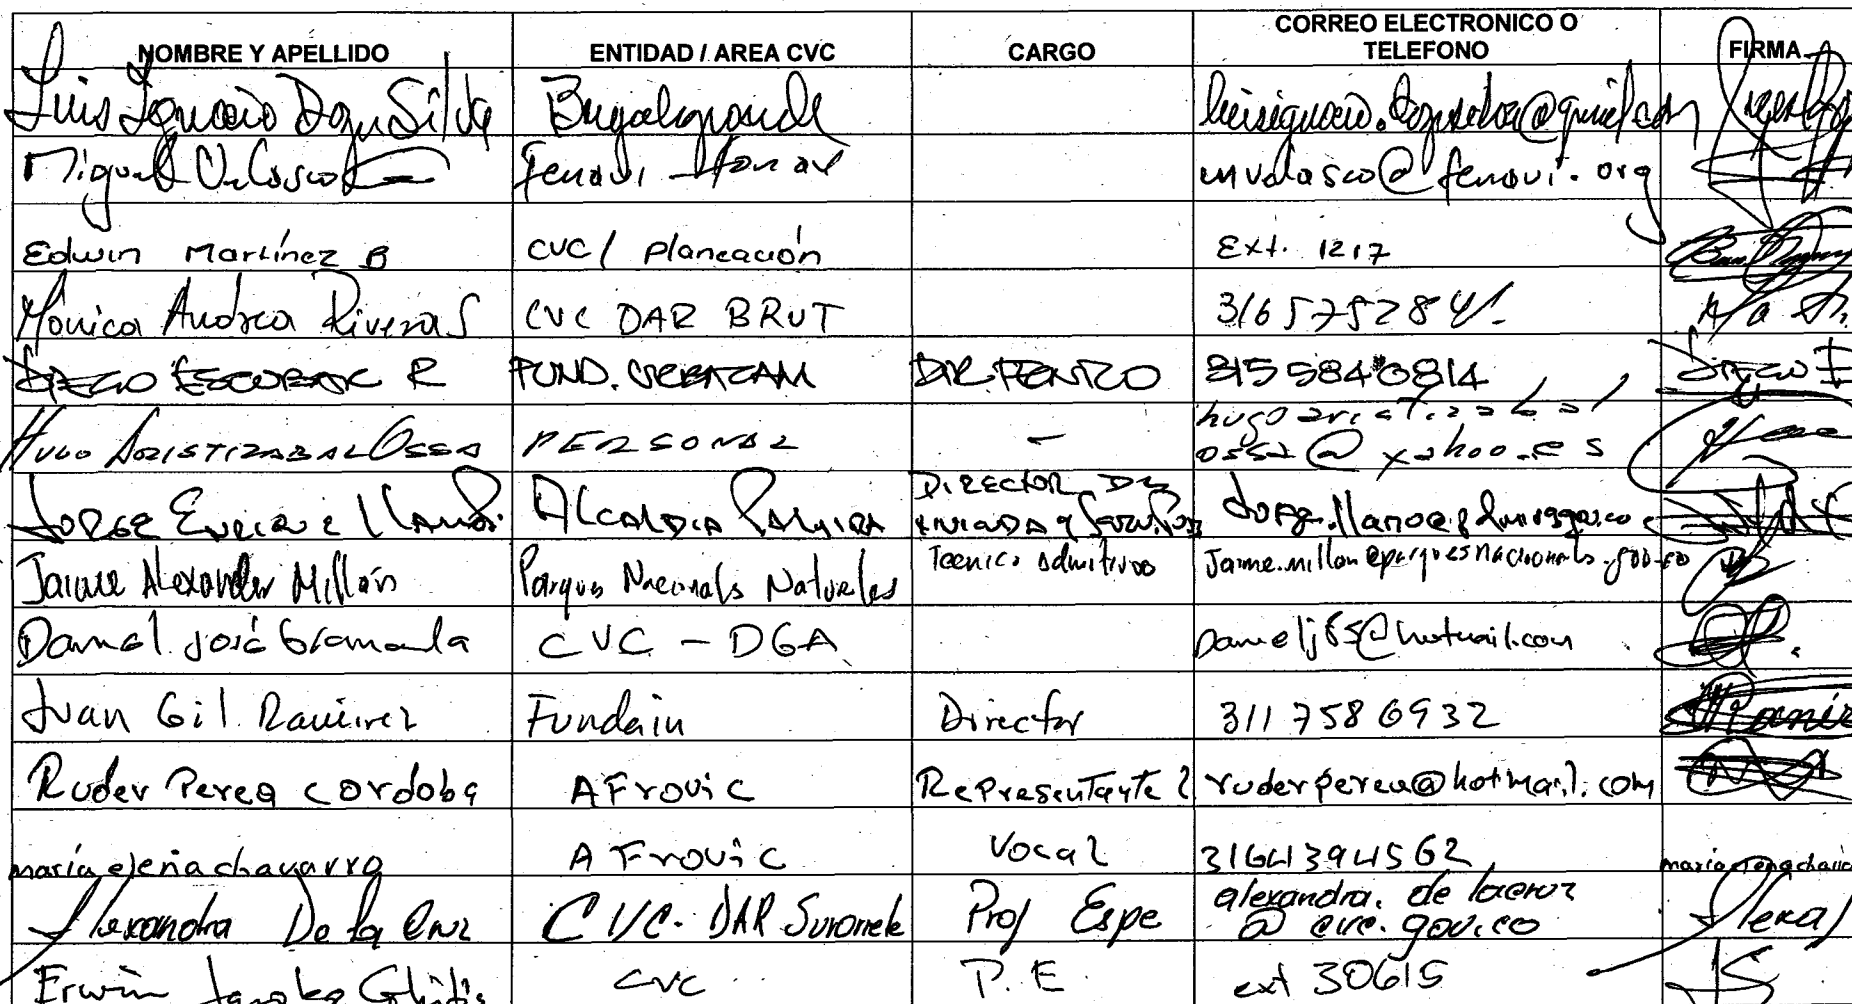 NOMBRE Y APELLIDO ENTIDAD / AREA CVC CARGO CORREO ELECTRONICO O TELEFONO FIRMA
Luis Ignacio Silva Bugalagrande
Miguel Velasco Fenavi mvelasco@fenavi.org
Edwin Martínez B CVC / Planeación Ext. 1217
Mónica Andrea Rivera S CVC DAR BRUT
DIEGO ESCOBAR R FUND. DIR TECNICO 3155840814 DIEGO E
HUGO ARISTIZABAL OSSA PERSONAL - hugoaristizabal
ossa@yahoo.es
JORGE ENRIQUE ALCALDIA PALMIRA DIRECTOR DE
VIVIENDA y
Jaime Alexander Millán Parques Nacionals Naturales Tecnico Admitivo Jaime.millan@parquesnacionales.gov.co
Daniel José Gramarla CVC - DGA Danielj85@hotmail.com
Juan Gil Ramirez Fundain Director 311 7586932
Ruder Perea cordoba AFrovic RePresentante ruderperea@hotmail.com
maría elena chavarro AFrovic Vocal 3164394562
Alexandra De la Cruz CVC. DAR Suroriente Prof Espe alexandra. de lacruz
@ cvc.gov.co Alexa
Erwin CVC P.E. ext 30615